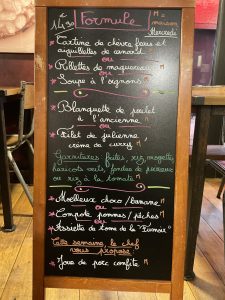 à 14,90 Formule M = maison
Mercredi
* Tartine de chèvre frais et
aiguillettes de canard M
ou
* Rillettes de maquereaux M
ou
* Soupe à l'oignons M
* Blanquette de poulet
à l'ancienne M
ou
* Filet de julienne
crème de curry M
Garnitures : frites, riz, mogettes
haricots verts, fondue de poireaux
ou riz à la tomate M
* Moelleux choco / banane M
ou
* Compote pommes / pêches M
ou
* Assiette de tome de la "Fumoir"
Cette semaine, le chef
vous propose :
* Joue de porc confite M